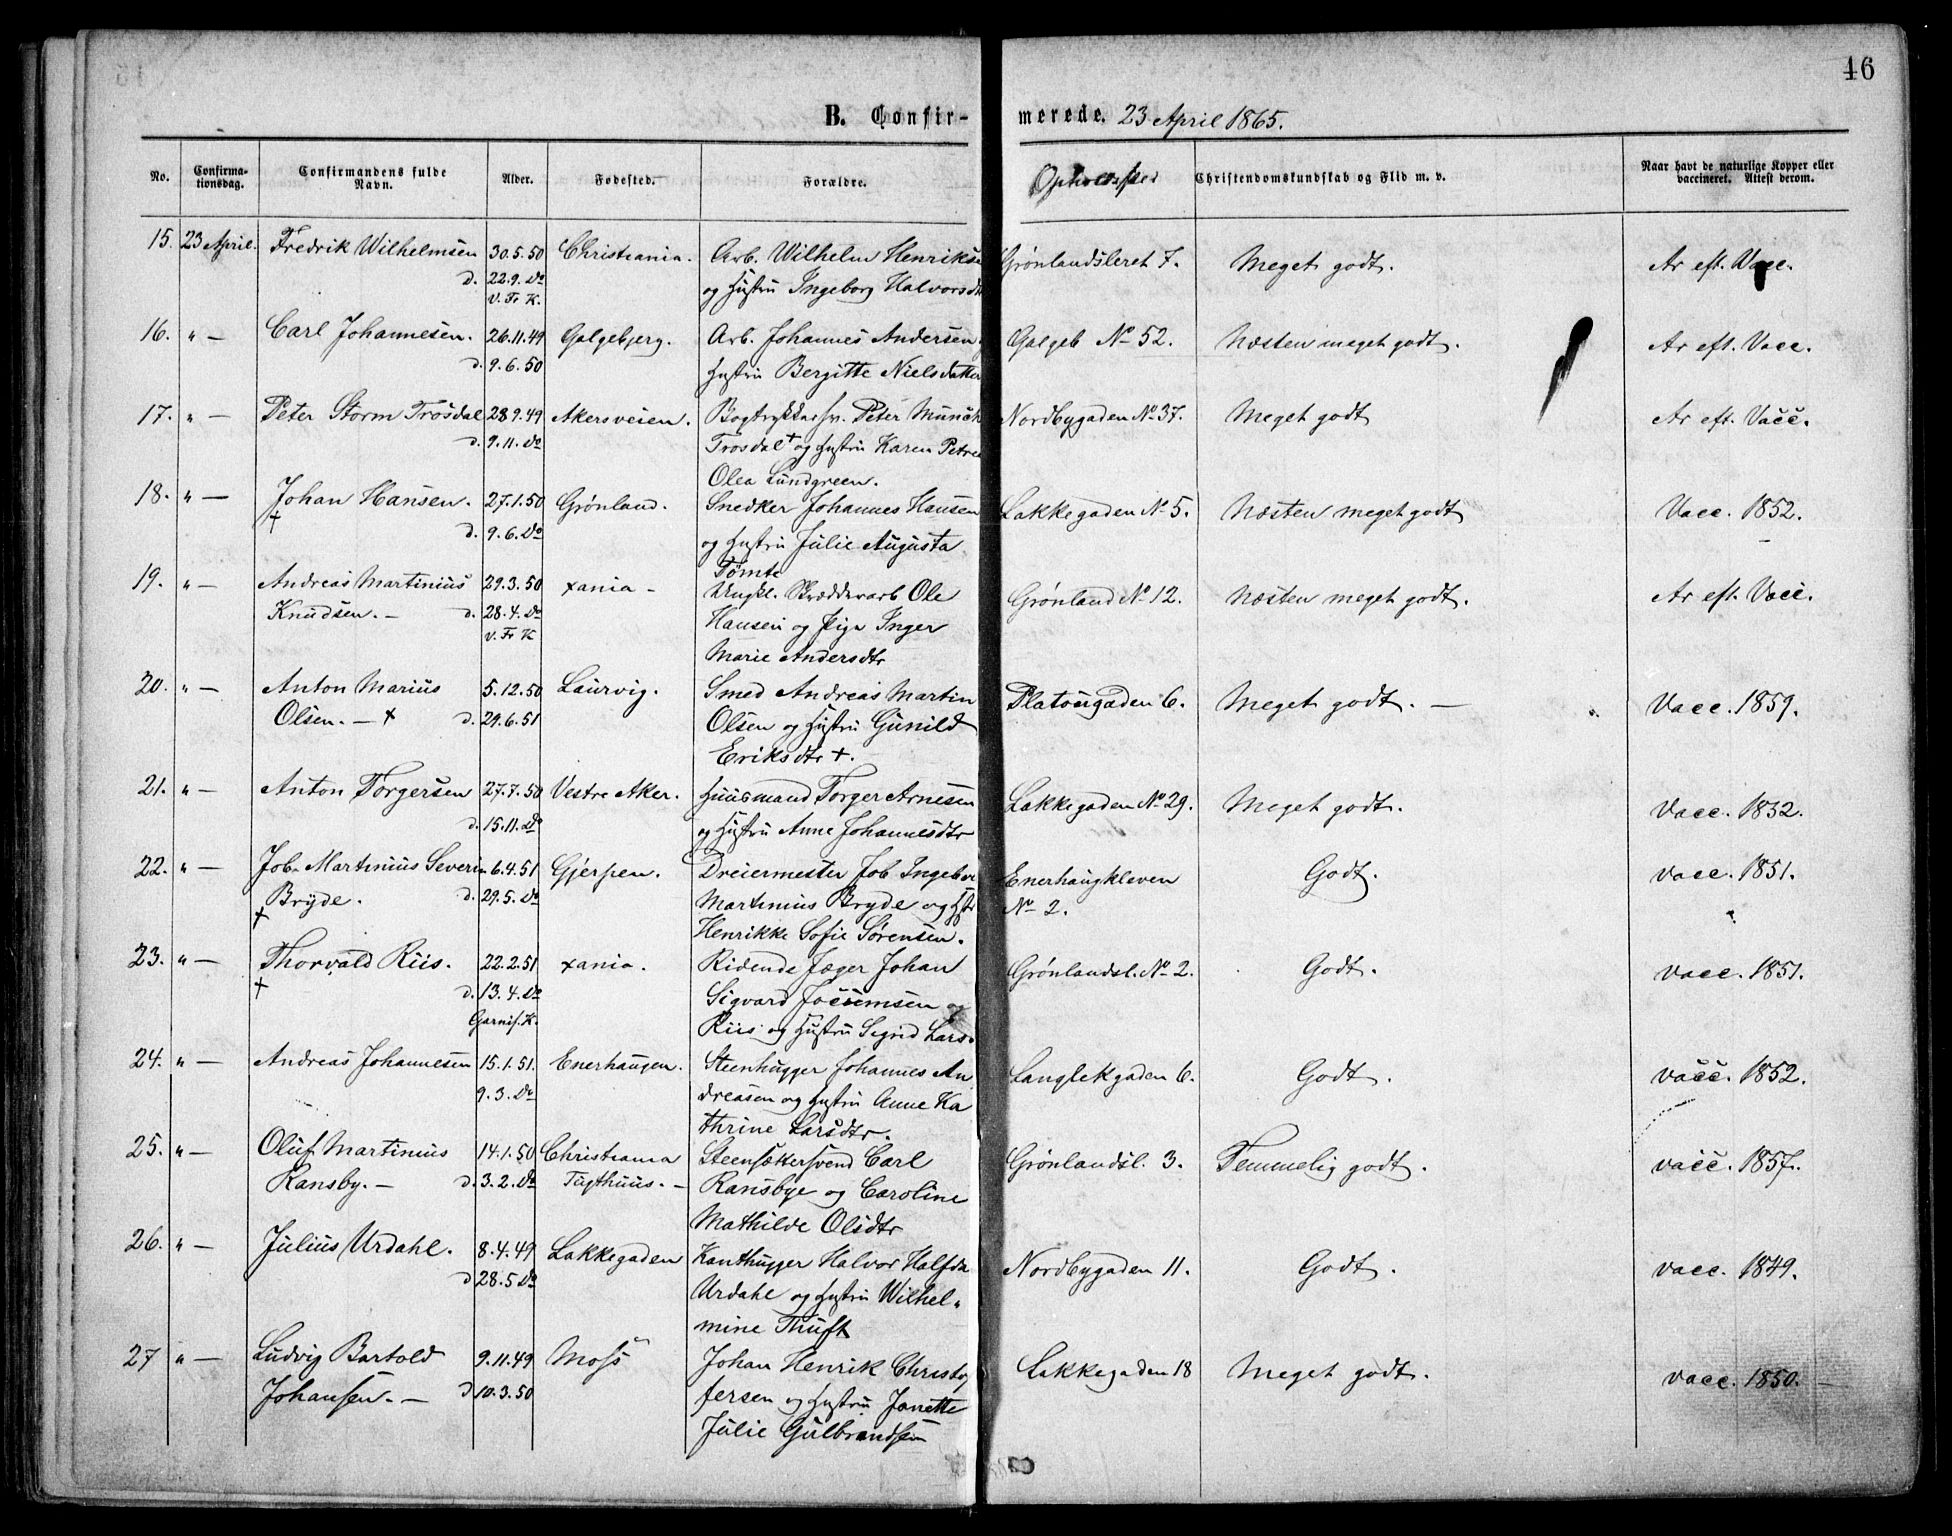 46
B. Confir-
merede. 23 April 1865.
No. Confirma-tionsdag. Confirmandens fulde Navn. Alder. Fødested. Forældre. Opholdssted Christendomskundskab og Flid m. v. Naar havt de naturlige Kopper eller vaccineret. Attest derom.
15. 23 April. Fredrik Wilhelmsen 30.5.50 Christiania. Arb. Wilhelm Henriks Grønlandsleret 7. Meget godt. Ar eft. Vacc.
d. 22.9. Do og Hustru Ingeborg Halvorsd
v. Fr K.
16. " — Carl Johannesen. 26.11.49 Galgebjerg. Arb. Johannes Andersen Galgeb No 52. Næsten meget godt. Ar eft. Vacc.
d. 9.6.50 Hustru Bergitte Nielsdatter
17. " — Peter Storm Trosdal 28.9.49 Akersveien. Bogtrykkersv. Peter Munch Nordbygaden No 37. Meget godt Ar eft. Vacc.
d. 9.11. Do Trosdal + og Hustru Karen Petrea
Olea Lundgreen.
18. " — Johan Hansen. 27.1.50 Grønland. Snedker Johannes Hansen Lakkegaden No 5. Næsten meget godt Vacc. 1852.
+ d. 9.6. Do og Hustru Julie Augusta
Tømte
19. " — Andreas Martinius 29.3.50 xania - Ungkl. Skrædderarb Ole Grønland No 12. Næsten meget godt. Ar eft. Vacc.
Knudsen. — d. 28.4. Do Hansen og Pige Inger
v. Fr K Marie Andersdtr
20. " — Anton Marius 5.12.50 Laurvig. Smed Andreas Martin Platougaden 6. Meget godt. — Vacc. 1859.
Olsen. — + d. 29.6.51 Olsen og Hustru Gunild
Eriksdtr +.
21. " — Anton Torgersen 27.7.50 Vestre Aker. Huusmand Torger Arnesen Lakkegaden No 29. Meget godt. Vacc. 1852.
d. 15.11. Do og Hustru Anne Johannesdtr
22. " — Job. Martinius Severin 6.4.51 Gjerpen. Dreiermester Job Ingebr Enerhaugkleven Godt. vacc. 1851.
+ Bryde. d. 29.5. Do Martinius Bryde og Hstr No 2.
Henrikke Sofie Sørensen.
23. " — Thorvald Riis. 22.2.51 xania. Ridende Jæger Johan Grønlandsl. No 2. Godt. vacc. 1851.
+ d. 13.4. Do Sigvard Jocumsen og
Garnis. K. Riis og Hustru Sigrid Lars.
24. " — Andreas Johannesen 15.1.51. Enerhaugen. Steenhugger Johannes An Langlekgaden 6. Godt. vacc. 1852.
9.3. Do dreasen og Hustru Anne Ka
thrine Larsdtr.
25. " — Oluf Martinius 14.1.50 Christiania Steensækersvend Carl Grønlandsl. 3. Temmelig godt. vacc. 1857.
Ransby. — d. 3.2. Do Tugthuus. — Ransbye og Caroline
Mathilde Olsdtr
26. " — Julius Urdahl. 8.4.49 Lakkegaden Kanthugger Halvor Halfda Nordbygaden 11. Godt. vacc. 1849.
d 28.5 Do Urdahl og Hustru Wilhel-
mine Thuft
27 " — Ludvig Bartold 9.11.49 Moss Johan Henrik Christof Lakkegaden 18 Meget godt. vacc. 1850. —
Johansen. — d 10.3.50 fersen og Hustru Janette
Julie Gulbrandsen